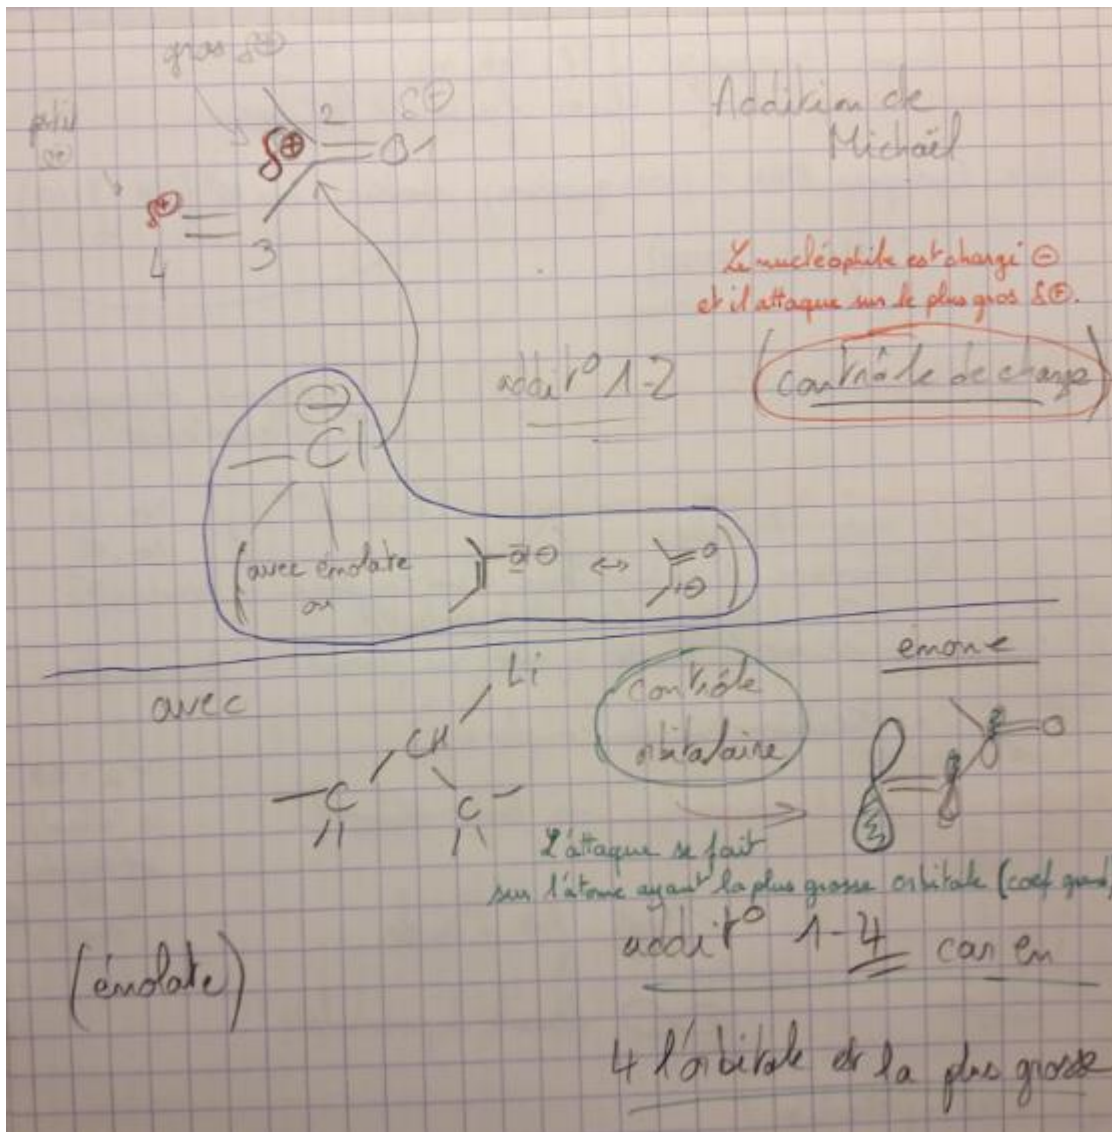 gros δ⊕
petit
δ⊕
δ⊖
2
δ⊕
O 1
δ⊕
4
3
Addition de
Michaël
Le nucléophile est chargé ⊖
et il attaque sur le plus gros δ⊕.
addit° 1-2
(contrôle de charge)
⊖
Cl
(avec énolate
ou
O ⊖ ↔ O
⊖)
avec
Li
CH
C
C
contrôle
orbitalaire
énone
O
L'attaque se fait
sur l'atome ayant la plus grosse orbitale (coef grand)
addit° 1-4 car en
4 l'orbitale est la plus grosse
(énolate)